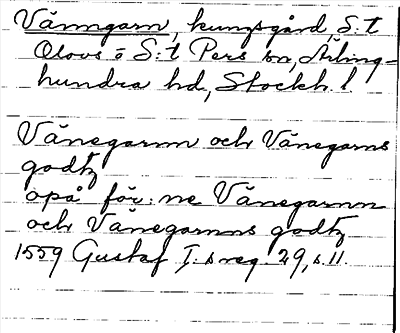 Vänngarn, kungsgård, S:t
Olovs o S:t Pers sn, Ärling-
hundra hd, Stockh. l
Vänegarnn och Vänegarns
godtz
opå för:ne Vänegarnn
och Vänegarnns godtz
1559 Gustaf I:s reg. 29, s. 11.